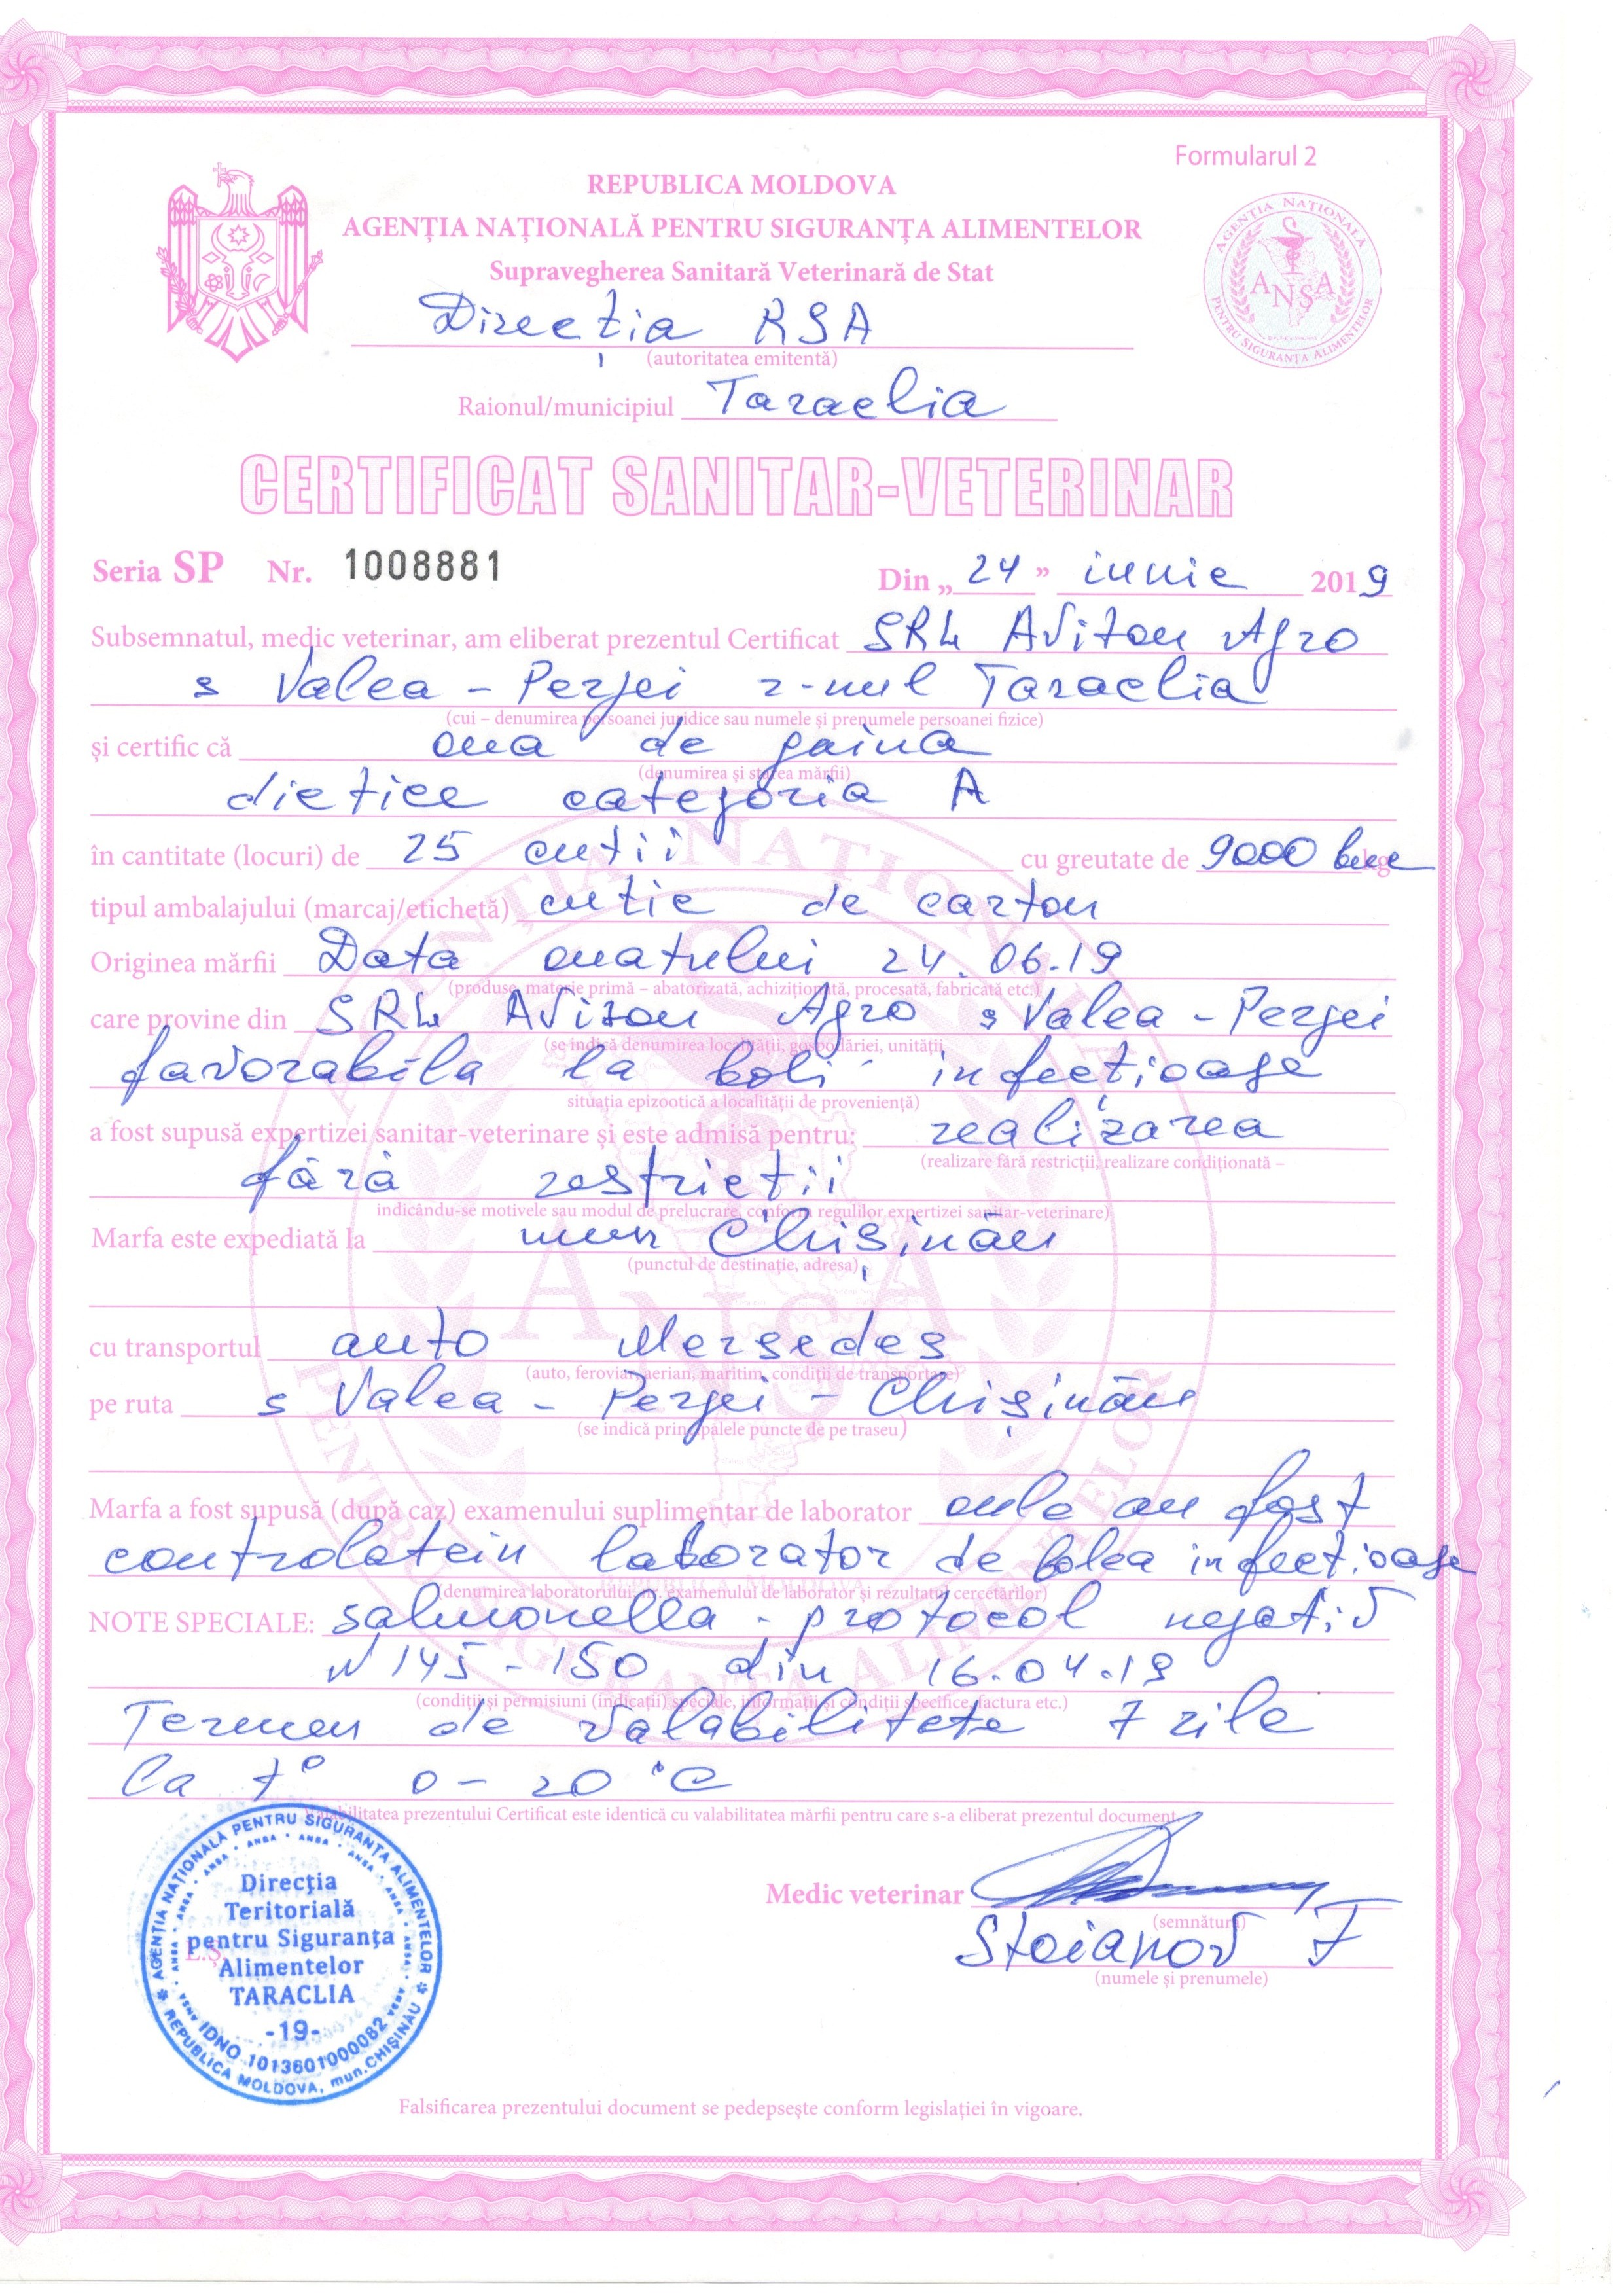 Formularul 2
REPUBLICA MOLDOVA
AGENȚIA NAȚIONALĂ PENTRU SIGURANȚA ALIMENTELOR
Supravegherea Sanitară Veterinară de Stat
Direcția RSA
(autoritatea emitentă)
Raionul/municipiul Taraclia
AGENȚIA NAȚIONALĂ
ANSA
PENTRU SIGURANȚA ALIMENTELOR
CERTIFICAT SANITAR-VETERINAR
Seria SP Nr. 1008881 Din „24” iunie 2019
Subsemnatul, medic veterinar, am eliberat prezentul Certificat SRL Aviton Agro
s Valea - Perjei r-nul Taraclia
(cui – denumirea persoanei juridice sau numele și prenumele persoanei fizice)
și certific că oua de gaina
(denumirea și starea mărfii)
dietice categoria A
în cantitate (locuri) de 25 cutii cu greutate de 9000 buc kg
tipul ambalajului (marcaj/etichetă) cutie de carton
Originea mărfii Data ouatului 24.06.19
(produse, materie primă – abatorizată, achiziționată, procesată, fabricată etc.)
care provine din SRL Aviton Agro s Valea - Perjei
(se indică denumirea localității, gospodăriei, unității,
favorabila la boli infecțioase
situația epizootică a localității de proveniență)
a fost supusă expertizei sanitar-veterinare și este admisă pentru: realizarea
(realizare fără restricții, realizare condiționată –
fără restricții
indicându-se motivele sau modul de prelucrare, conform regulilor expertizei sanitar-veterinare)
Marfa este expediată la mun Chișinău
(punctul de destinație, adresa)
cu transportul auto Mersedes
(auto, feroviar, aerian, maritim, condiții de transportare)
pe ruta s Valea - Perjei - Chișinău
(se indică principalele puncte de pe traseu)
Marfa a fost supusă (după caz) examenului suplimentar de laborator oule au fost
controlate in laborator de bolea infectioase
(denumirea laboratorului, nr. examenului de laborator și rezultatul cercetărilor)
NOTE SPECIALE: salmonella - protocol negativ
N 145-150 din 16.04.19
(condiții și permisiuni (indicații) speciale, informații și condiții specifice, factura etc.)
Termen de valabilitete 7 zile
La t° 0 - 20 °C
Valabilitatea prezentului Certificat este identică cu valabilitatea mărfii pentru care s-a eliberat prezentul document
Medic veterinar
(semnătura)
Stoianov F
(numele și prenumele)
L.Ș.
AGENȚIA NAȚIONALĂ PENTRU SIGURANȚA ALIMENTELOR
Direcția
Teritorială
pentru Siguranța
Alimentelor
TARACLIA
-19-
IDNO 1013601000082
REPUBLICA MOLDOVA, mun.CHIȘINĂU
Falsificarea prezentului document se pedepsește conform legislației în vigoare.